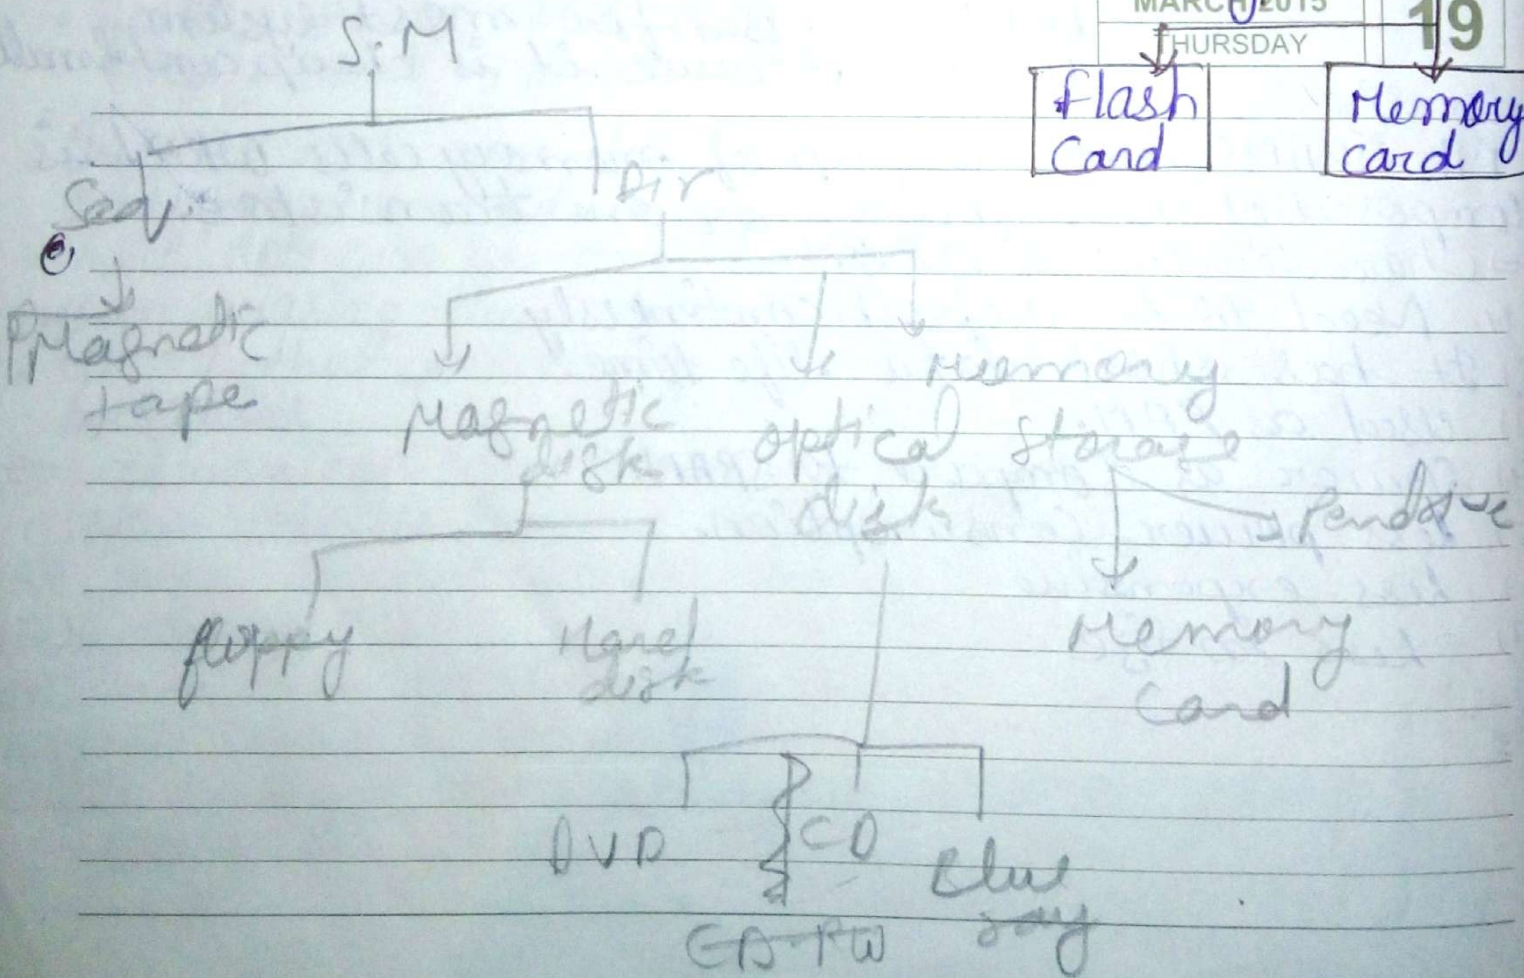 MARCH 2015
19
THURSDAY
Flash
Card
Memory
Card
S.M
Seq.
Dir
Magnetic
tape
Magnetic
disk
optical
disk
Memory
Storage
Pendrive
floppy
Hard
disk
Memory
Card
DVD
CD
Blue
ray